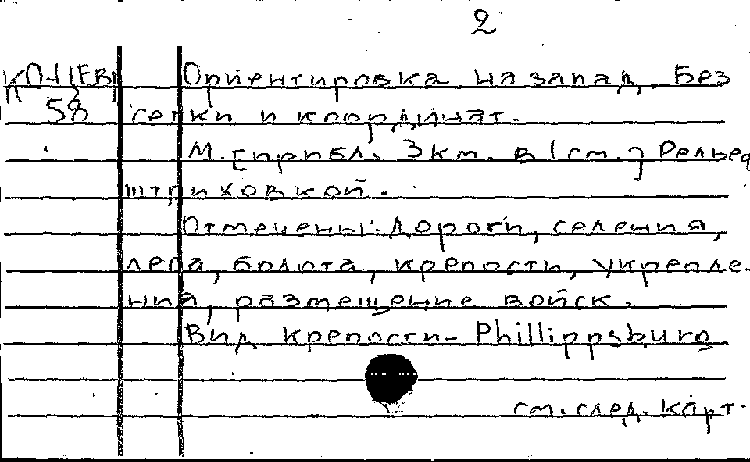 2
Ориентировка на запад. Без
58 сетки и координат.
М. [прибл. 3 км. в 1 см.] Рельеф
штриховкой.
Отмечены: дороги, селения,
леса, болота, крепости, укрепле-
ния, размещение войск.
Вид крепости - Phillippsburg.
см. след. карт.